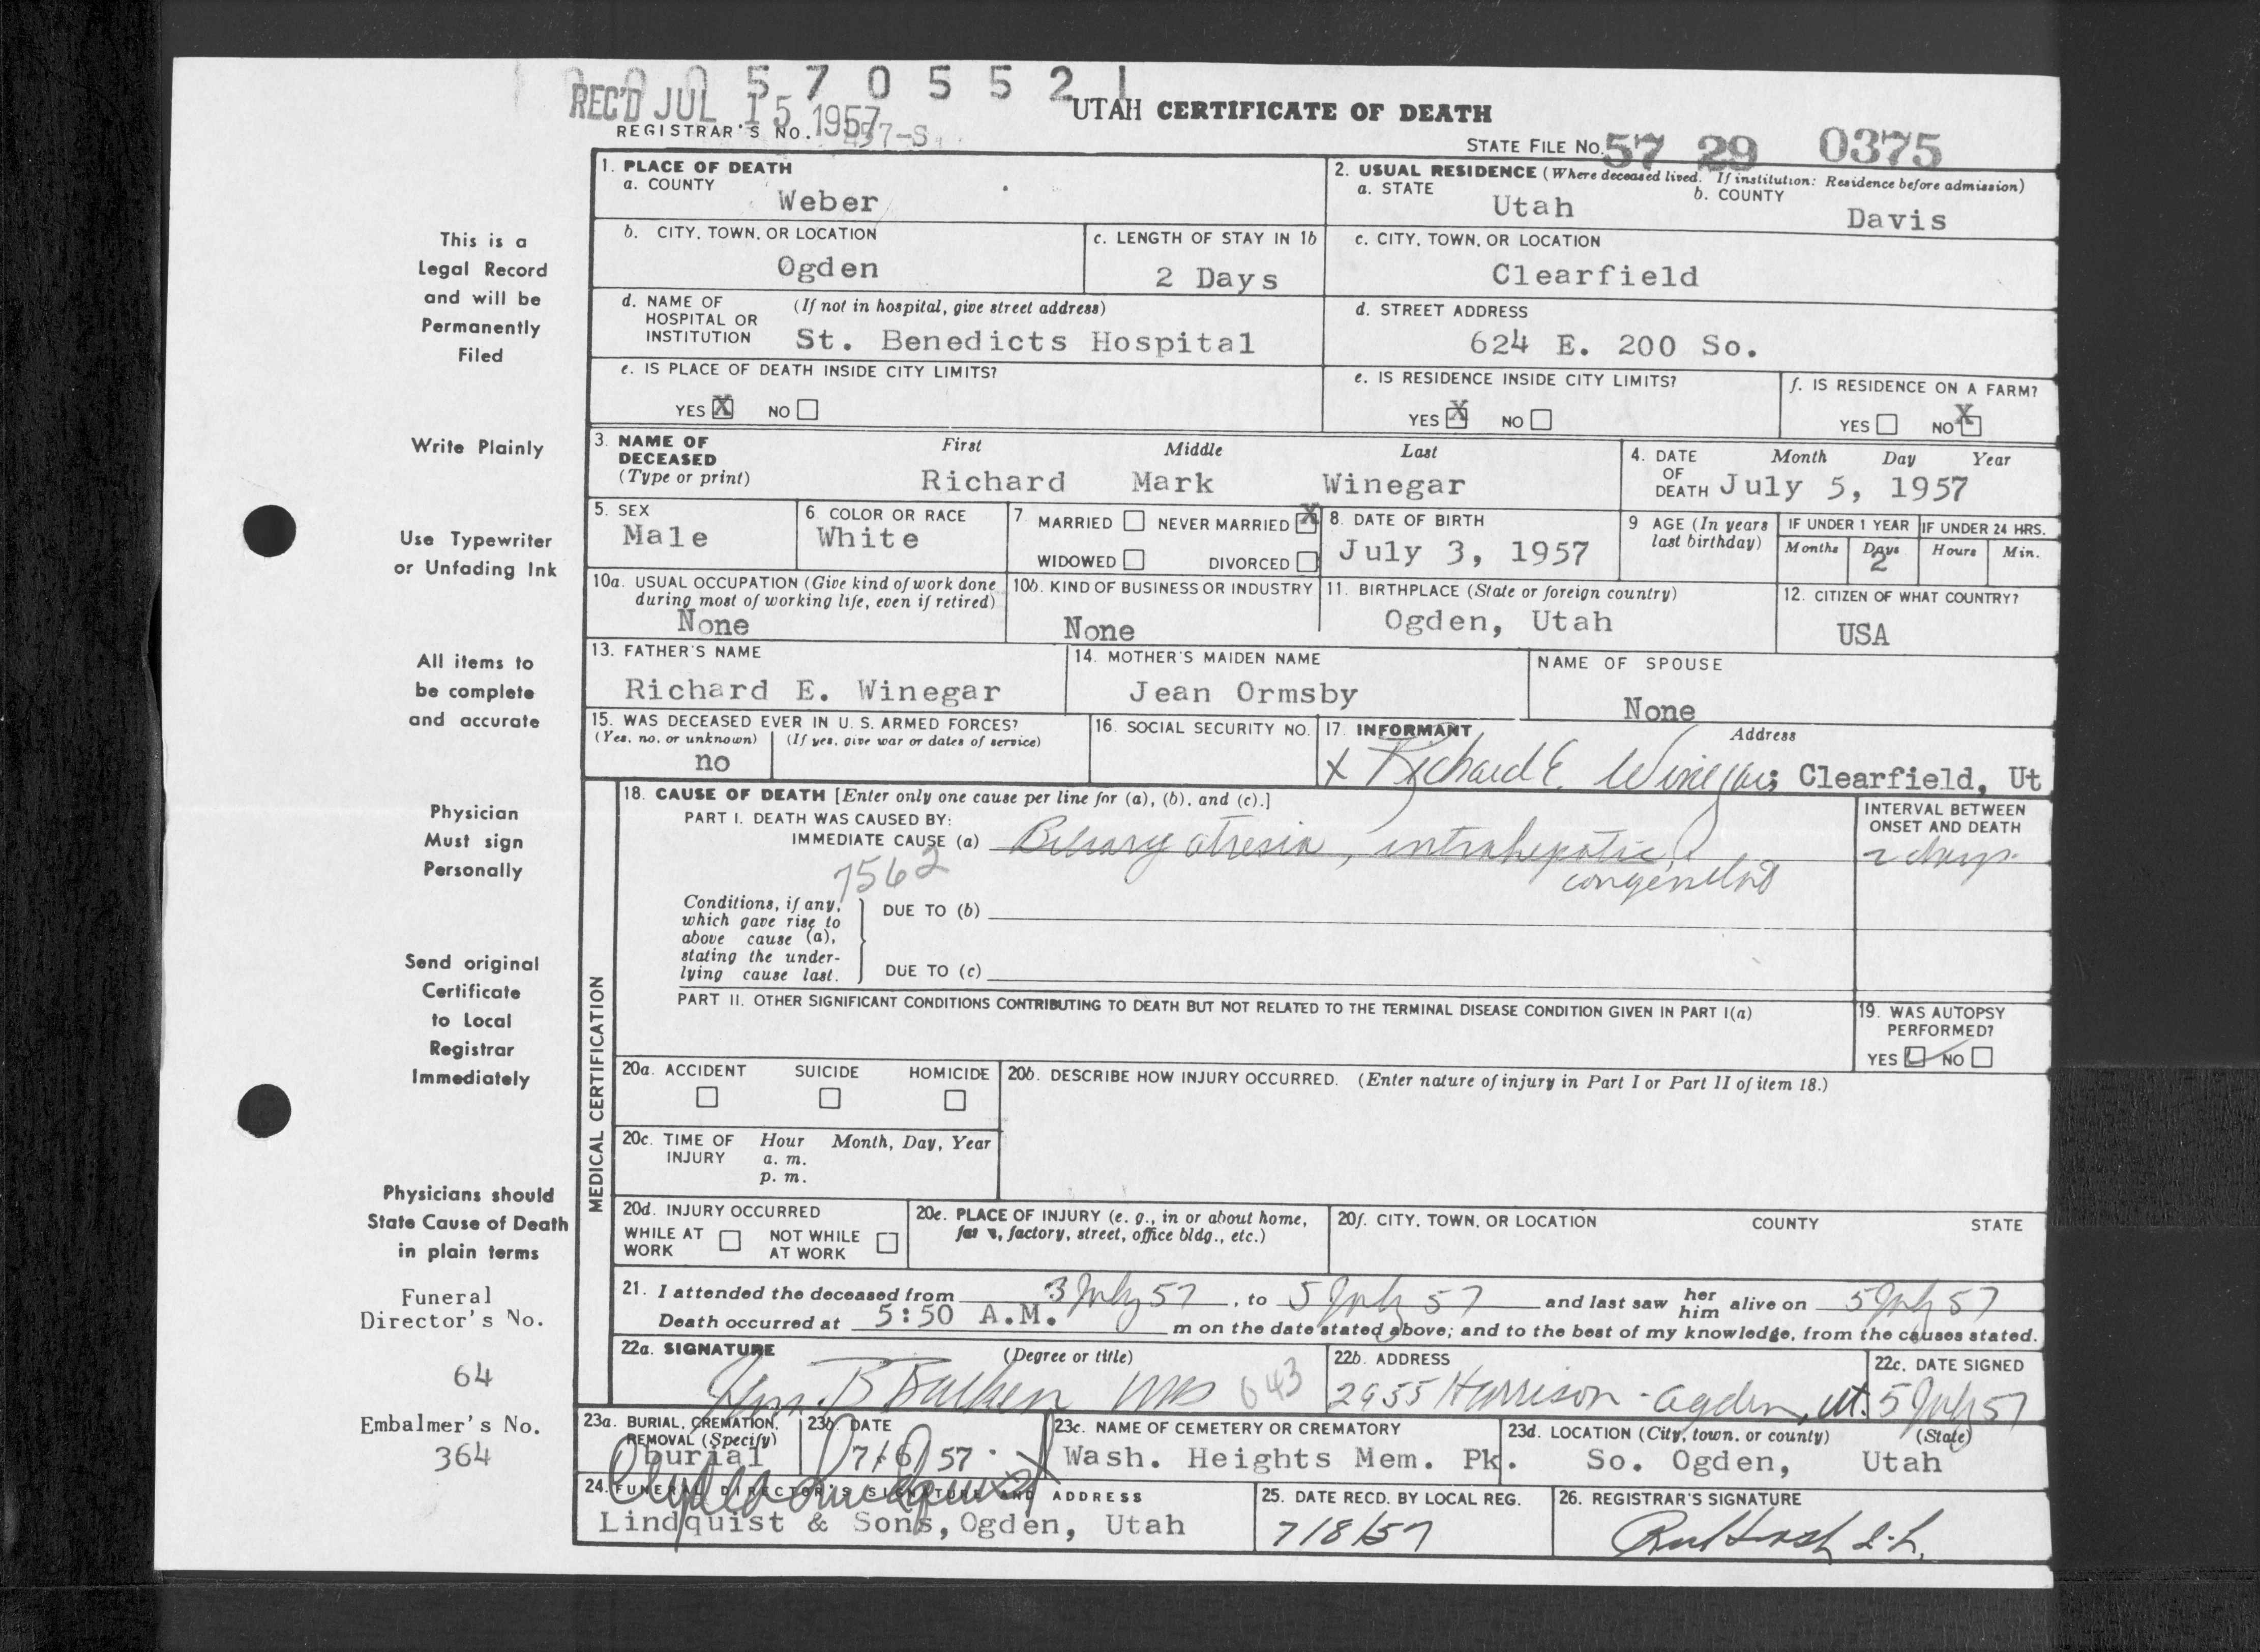 0 0 0 5 7 0 5 5 2 1
REC'D JUL 15 1957
UTAH CERTIFICATE OF DEATH
REGISTRAR'S NO. 497-S
STATE FILE NO. 57 29 0375
1. PLACE OF DEATH
a. COUNTY
Weber
2. USUAL RESIDENCE (Where deceased lived. If institution: Residence before admission)
a. STATE
Utah
b. COUNTY
Davis
b. CITY, TOWN, OR LOCATION
Ogden
c. LENGTH OF STAY IN 1b
2 Days
c. CITY, TOWN, OR LOCATION
Clearfield
d. NAME OF HOSPITAL OR INSTITUTION
(If not in hospital, give street address)
St. Benedicts Hospital
d. STREET ADDRESS
624 E. 200 So.
e. IS PLACE OF DEATH INSIDE CITY LIMITS?
YES X NO
e. IS RESIDENCE INSIDE CITY LIMITS?
YES X NO
f. IS RESIDENCE ON A FARM?
YES NO X
3. NAME OF DECEASED (Type or print)
First Middle Last
Richard Mark Winegar
4. DATE OF DEATH
Month Day Year
July 5, 1957
5. SEX
Male
6. COLOR OR RACE
White
7. MARRIED NEVER MARRIED X
WIDOWED DIVORCED
8. DATE OF BIRTH
July 3, 1957
9 AGE (In years last birthday)
IF UNDER 1 YEAR IF UNDER 24 HRS.
Months Days Hours Min.
2
10a. USUAL OCCUPATION (Give kind of work done during most of working life, even if retired)
None
10b. KIND OF BUSINESS OR INDUSTRY
None
11. BIRTHPLACE (State or foreign country)
Ogden, Utah
12. CITIZEN OF WHAT COUNTRY?
USA
13. FATHER'S NAME
Richard E. Winegar
14. MOTHER'S MAIDEN NAME
Jean Ormsby
NAME OF SPOUSE
None
15. WAS DECEASED EVER IN U. S. ARMED FORCES?
(Yes, no, or unknown) (If yes, give war or dates of service)
no
16. SOCIAL SECURITY NO.
17. INFORMANT Address
x Richard E. Winegar; Clearfield, Ut
MEDICAL CERTIFICATION
18. CAUSE OF DEATH [Enter only one cause per line for (a), (b), and (c).]
PART I. DEATH WAS CAUSED BY:
IMMEDIATE CAUSE (a) Biliary atresia, intrahepatic,
congenital
7562
INTERVAL BETWEEN ONSET AND DEATH
2 days
Conditions, if any, which gave rise to above cause (a), stating the underlying cause last.
DUE TO (b)
DUE TO (c)
PART II. OTHER SIGNIFICANT CONDITIONS CONTRIBUTING TO DEATH BUT NOT RELATED TO THE TERMINAL DISEASE CONDITION GIVEN IN PART I(a)
19. WAS AUTOPSY PERFORMED?
YES NO
20a. ACCIDENT SUICIDE HOMICIDE
20b. DESCRIBE HOW INJURY OCCURRED. (Enter nature of injury in Part I or Part II of item 18.)
20c. TIME OF INJURY
Hour Month, Day, Year
a. m.
p. m.
20d. INJURY OCCURRED
WHILE AT WORK NOT WHILE AT WORK
20e. PLACE OF INJURY (e. g., in or about home, factory, street, office bldg., etc.)
20f. CITY, TOWN, OR LOCATION COUNTY STATE
21. I attended the deceased from 3 July 57, to 5 July 57 and last saw her him alive on 5 July 57
Death occurred at 5:50 A.M. m on the date stated above; and to the best of my knowledge, from the causes stated.
22a. SIGNATURE (Degree or title)
MD 643
22b. ADDRESS
2955 Harrison - Ogden, Ut.
22c. DATE SIGNED
5 July 57
23a. BURIAL, CREMATION, REMOVAL (Specify)
burial
23b. DATE
7/6/57
23c. NAME OF CEMETERY OR CREMATORY
Wash. Heights Mem. Pk.
23d. LOCATION (City, town, or county) (State)
So. Ogden, Utah
24. FUNERAL DIRECTOR'S SIGNATURE AND ADDRESS
Lindquist & Sons, Ogden, Utah
25. DATE RECD. BY LOCAL REG.
7/8/57
26. REGISTRAR'S SIGNATURE
This is a
Legal Record
and will be
Permanently
Filed
Write Plainly
Use Typewriter
or Unfading Ink
All items to
be complete
and accurate
Physician
Must sign
Personally
Send original
Certificate
to Local
Registrar
Immediately
Physicians should
State Cause of Death
in plain terms
Funeral
Director's No.
64
Embalmer's No.
364